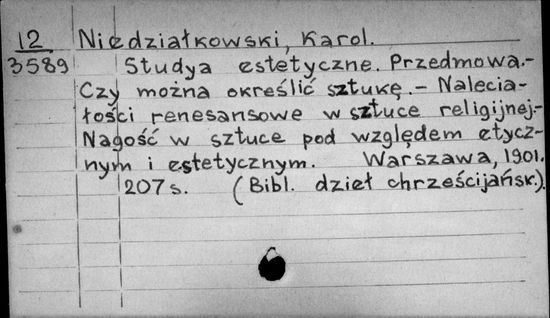 12 Niedziałkowski, Karol.
3589 Studya estetyczne. Przedmowa.-
Czy można określić sztukę.- Nalecia-
łości renesansowe w sztuce religijnej.-
Nagość w sztuce pod względem etycz-
nym i estetycznym. Warszawa, 1901.
207 s. (Bibl. dzieł chrześcijańsk.).